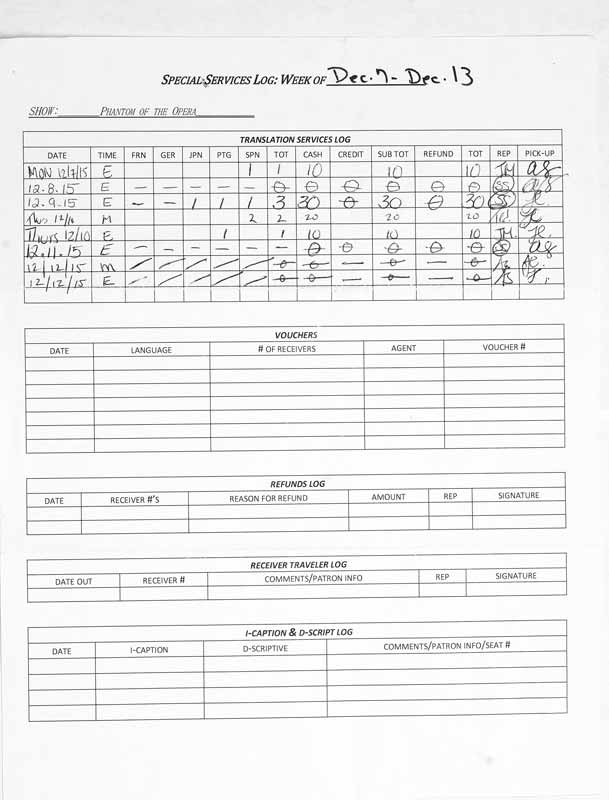 SPECIAL SERVICES LOG: WEEK OF Dec. 7 - Dec. 13
SHOW: PHANTOM OF THE OPERA
TRANSLATION SERVICES LOG
DATE TIME FRN GER JPN PTG SPN TOT CASH CREDIT SUB TOT REFUND TOT REP PICK-UP
MON 12/7/15 E 1 1 10 10 10 JM
12.8.15 E — — — — — 0 0 0 0 0 0 SS
12.9.15 E — — 1 1 1 3 30 0 30 0 30 SS
Thus 12/10 M 2 2 20 20 20
Thurs 12/10 E 1 1 10 10 10 JM
12.11.15 E — — — — — — 0 0 0 0 0 SS
12/12/15 M / / / / / 0 0 — 0 — 0
12/12/15 E / / / / / 0 0 — 0 — 0
VOUCHERS
DATE LANGUAGE # OF RECEIVERS AGENT VOUCHER #
REFUNDS LOG
DATE RECEIVER #'S REASON FOR REFUND AMOUNT REP SIGNATURE
RECEIVER TRAVELER LOG
DATE OUT RECEIVER # COMMENTS/PATRON INFO REP SIGNATURE
I-CAPTION & D-SCRIPT LOG
DATE I-CAPTION D-SCRIPTIVE COMMENTS/PATRON INFO/SEAT #